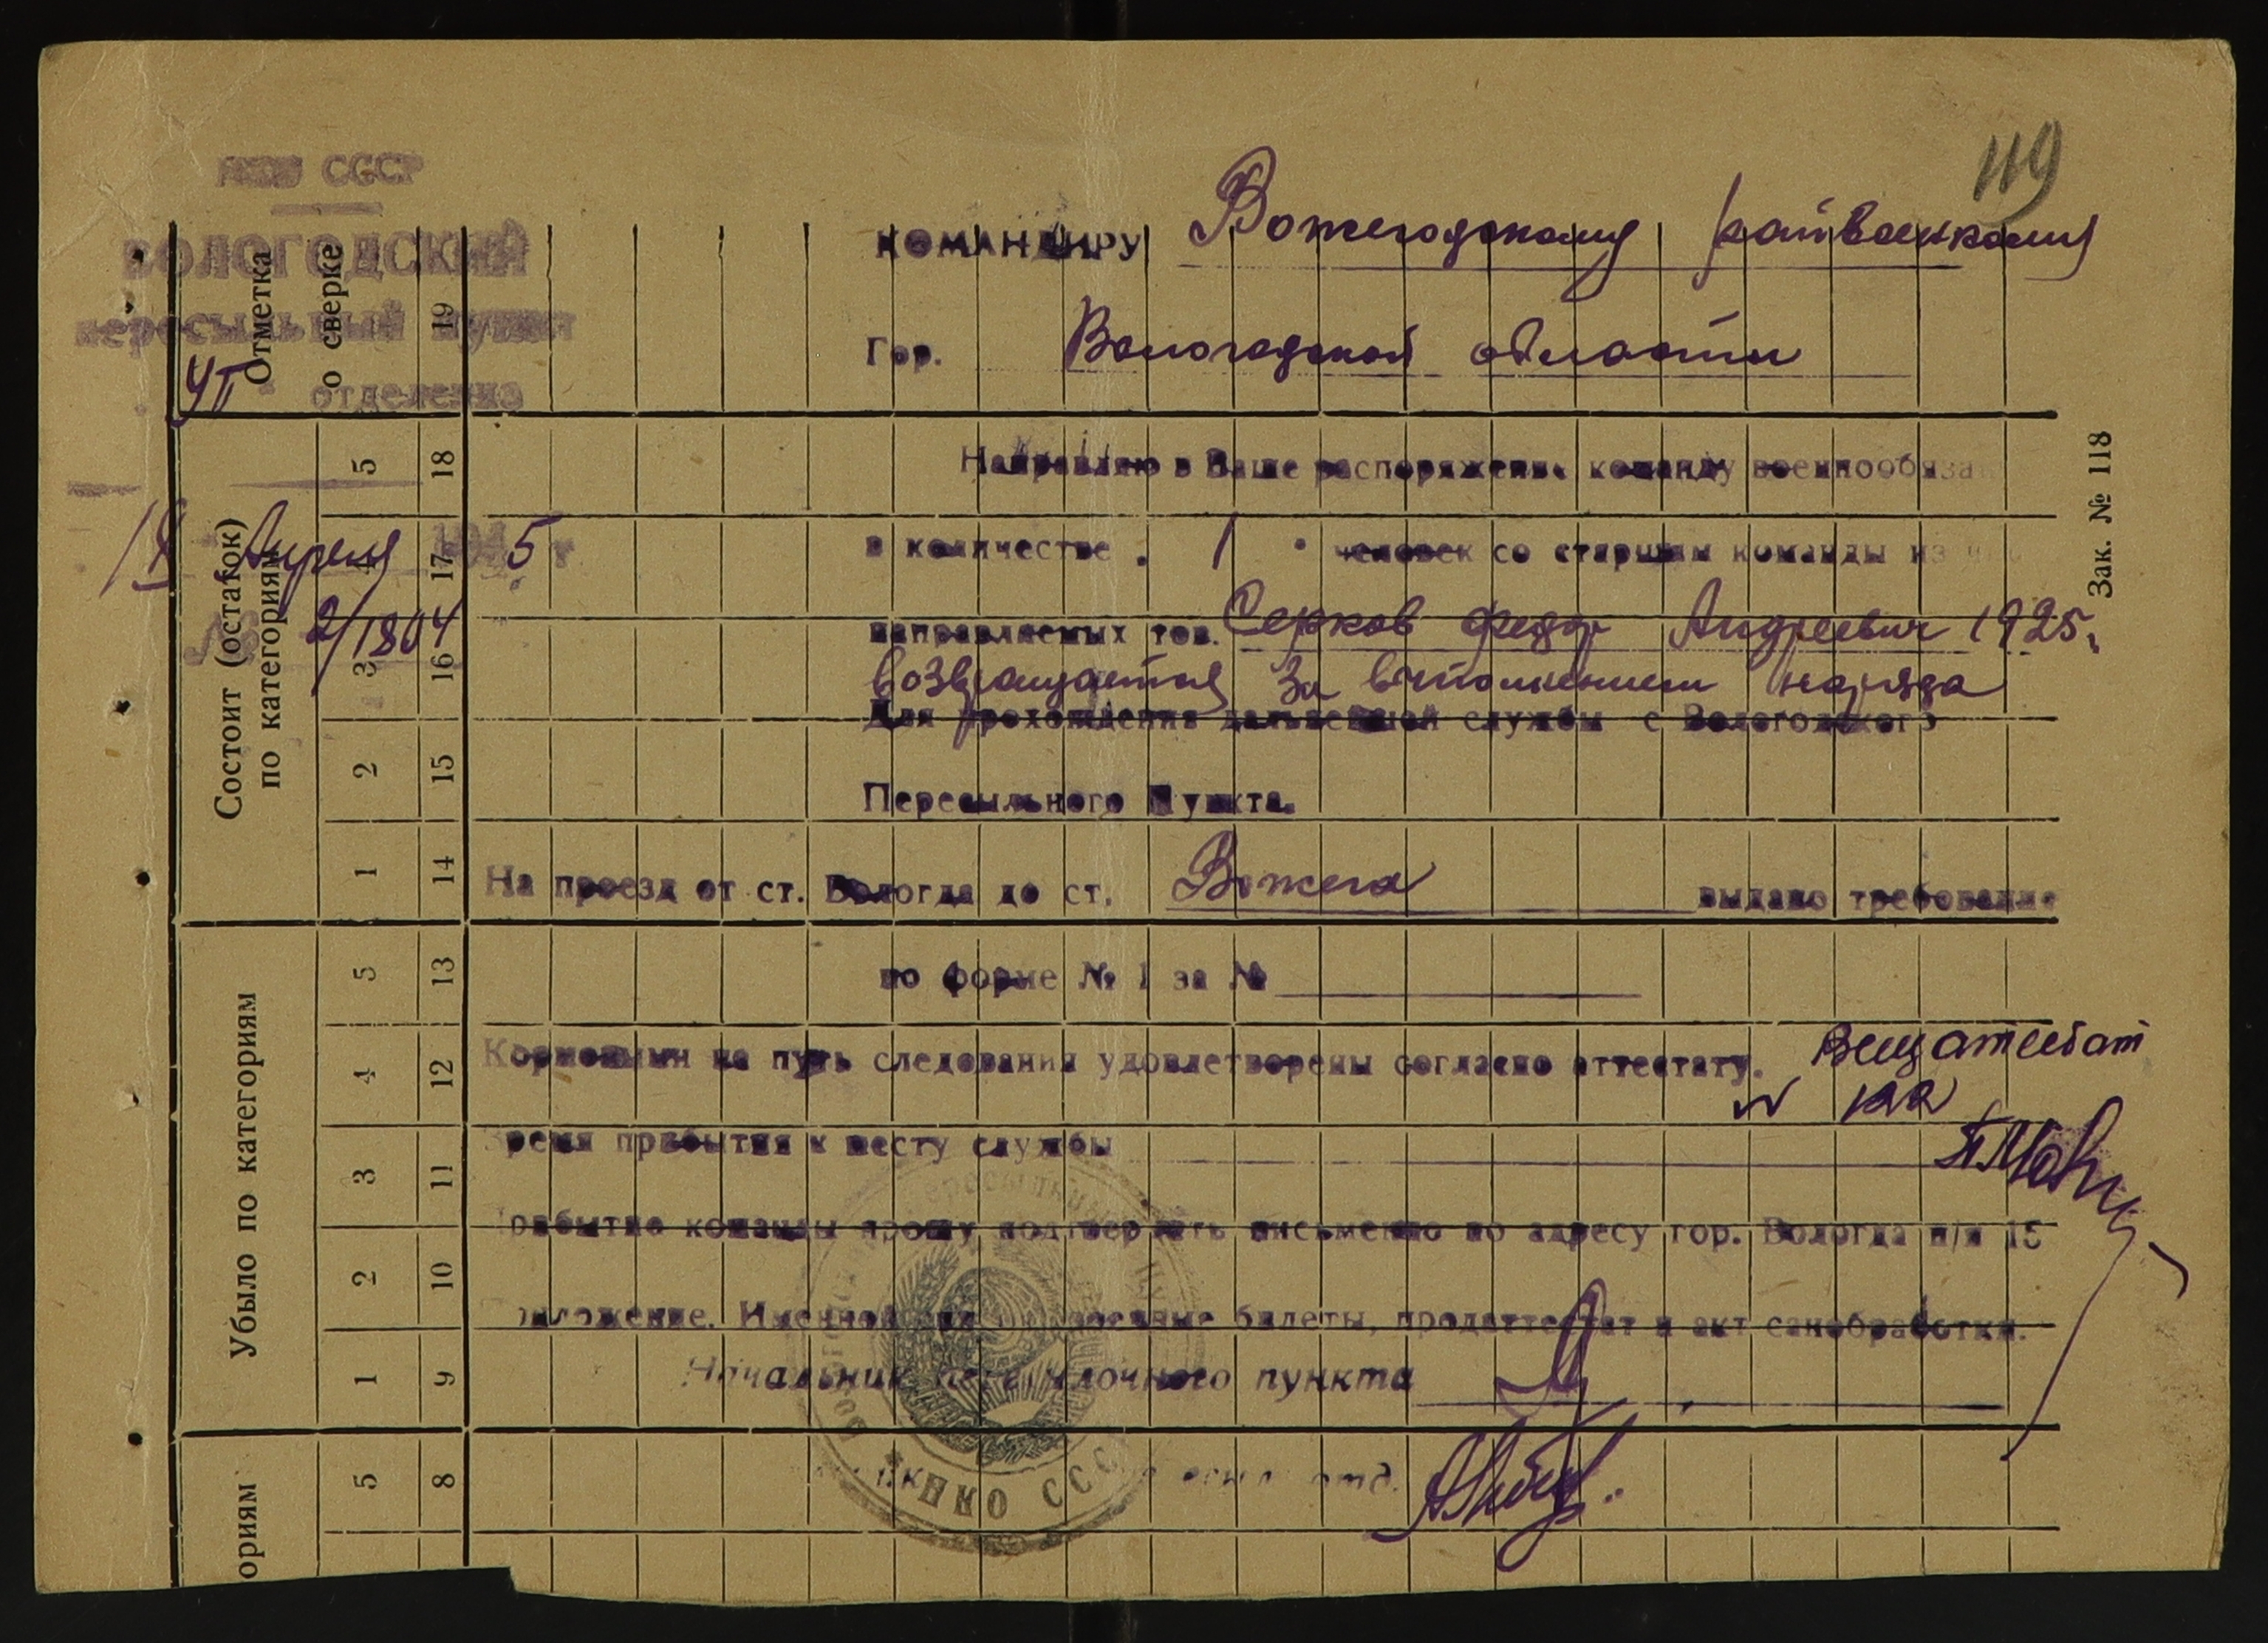 119
НКО СССР
ВОЛОГОДСКИЙ
пересыльный пункт
отделение
18 Апреля 1945 г.
№ 2/1804
КОМАНДИРУ Вожегодскому райвоенкому
Гор. Вологодской области
Направляю в Ваше распоряжение команду военнообяза
в количестве 1 человек со старшим команды из
направляемых тов. Серков Федор Андреевич 1925.
возвращается за выполнением наряда
Для прохождения дальнейшей службы с Вологодского
Пересыльного Пункта.
На проезд от ст. Вологда до ст. Вожега выдано требование
по форме № 1 за №
Кормовыми на путь следования удовлетворены согласно аттестату. Вещаттестат
Время прибытия к месту службы
Прибытие команды прошу подтвердить письменно по адресу гор. Вологда п/я 15
Приложение. Именной билеты, продаттестат и акт санобработки.
Начальник пересылочного пункта
отд.
НКО СССР
Отметка о сверке
19
Состоит (остаток) по категориям
5 4 3 2 1
18 17 16 15 14
Убыло по категориям
5 4 3 2 1
13 12 11 10 9
ориям
5
8
Зак. № 118